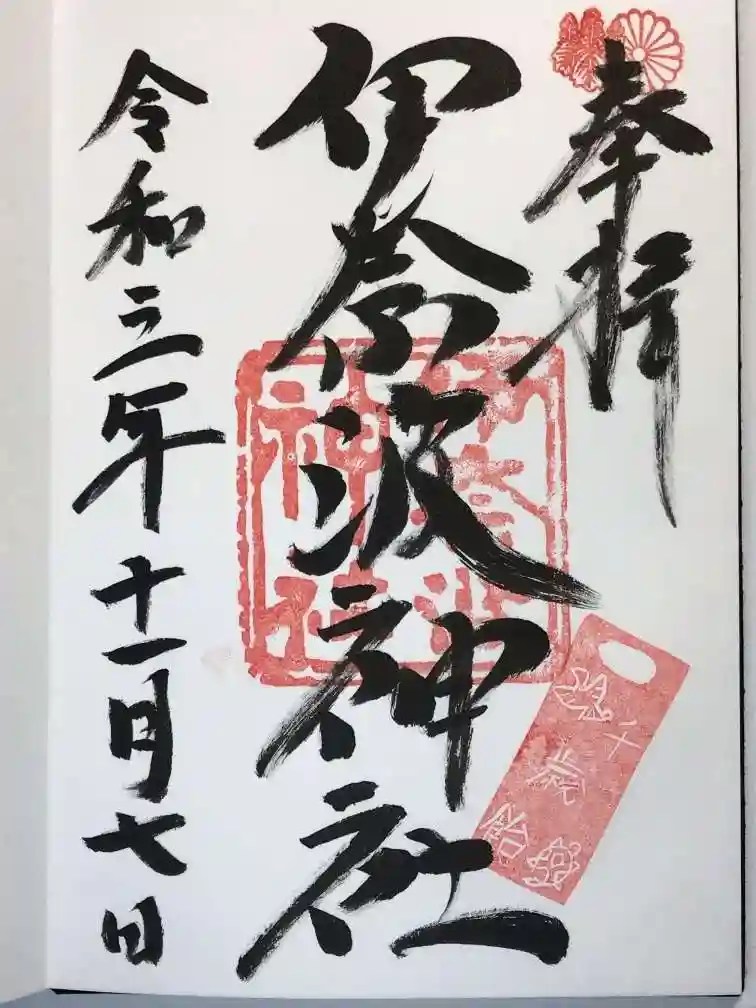 奉拝
伊奈波神社
令和三年十一月七日
千歳飴